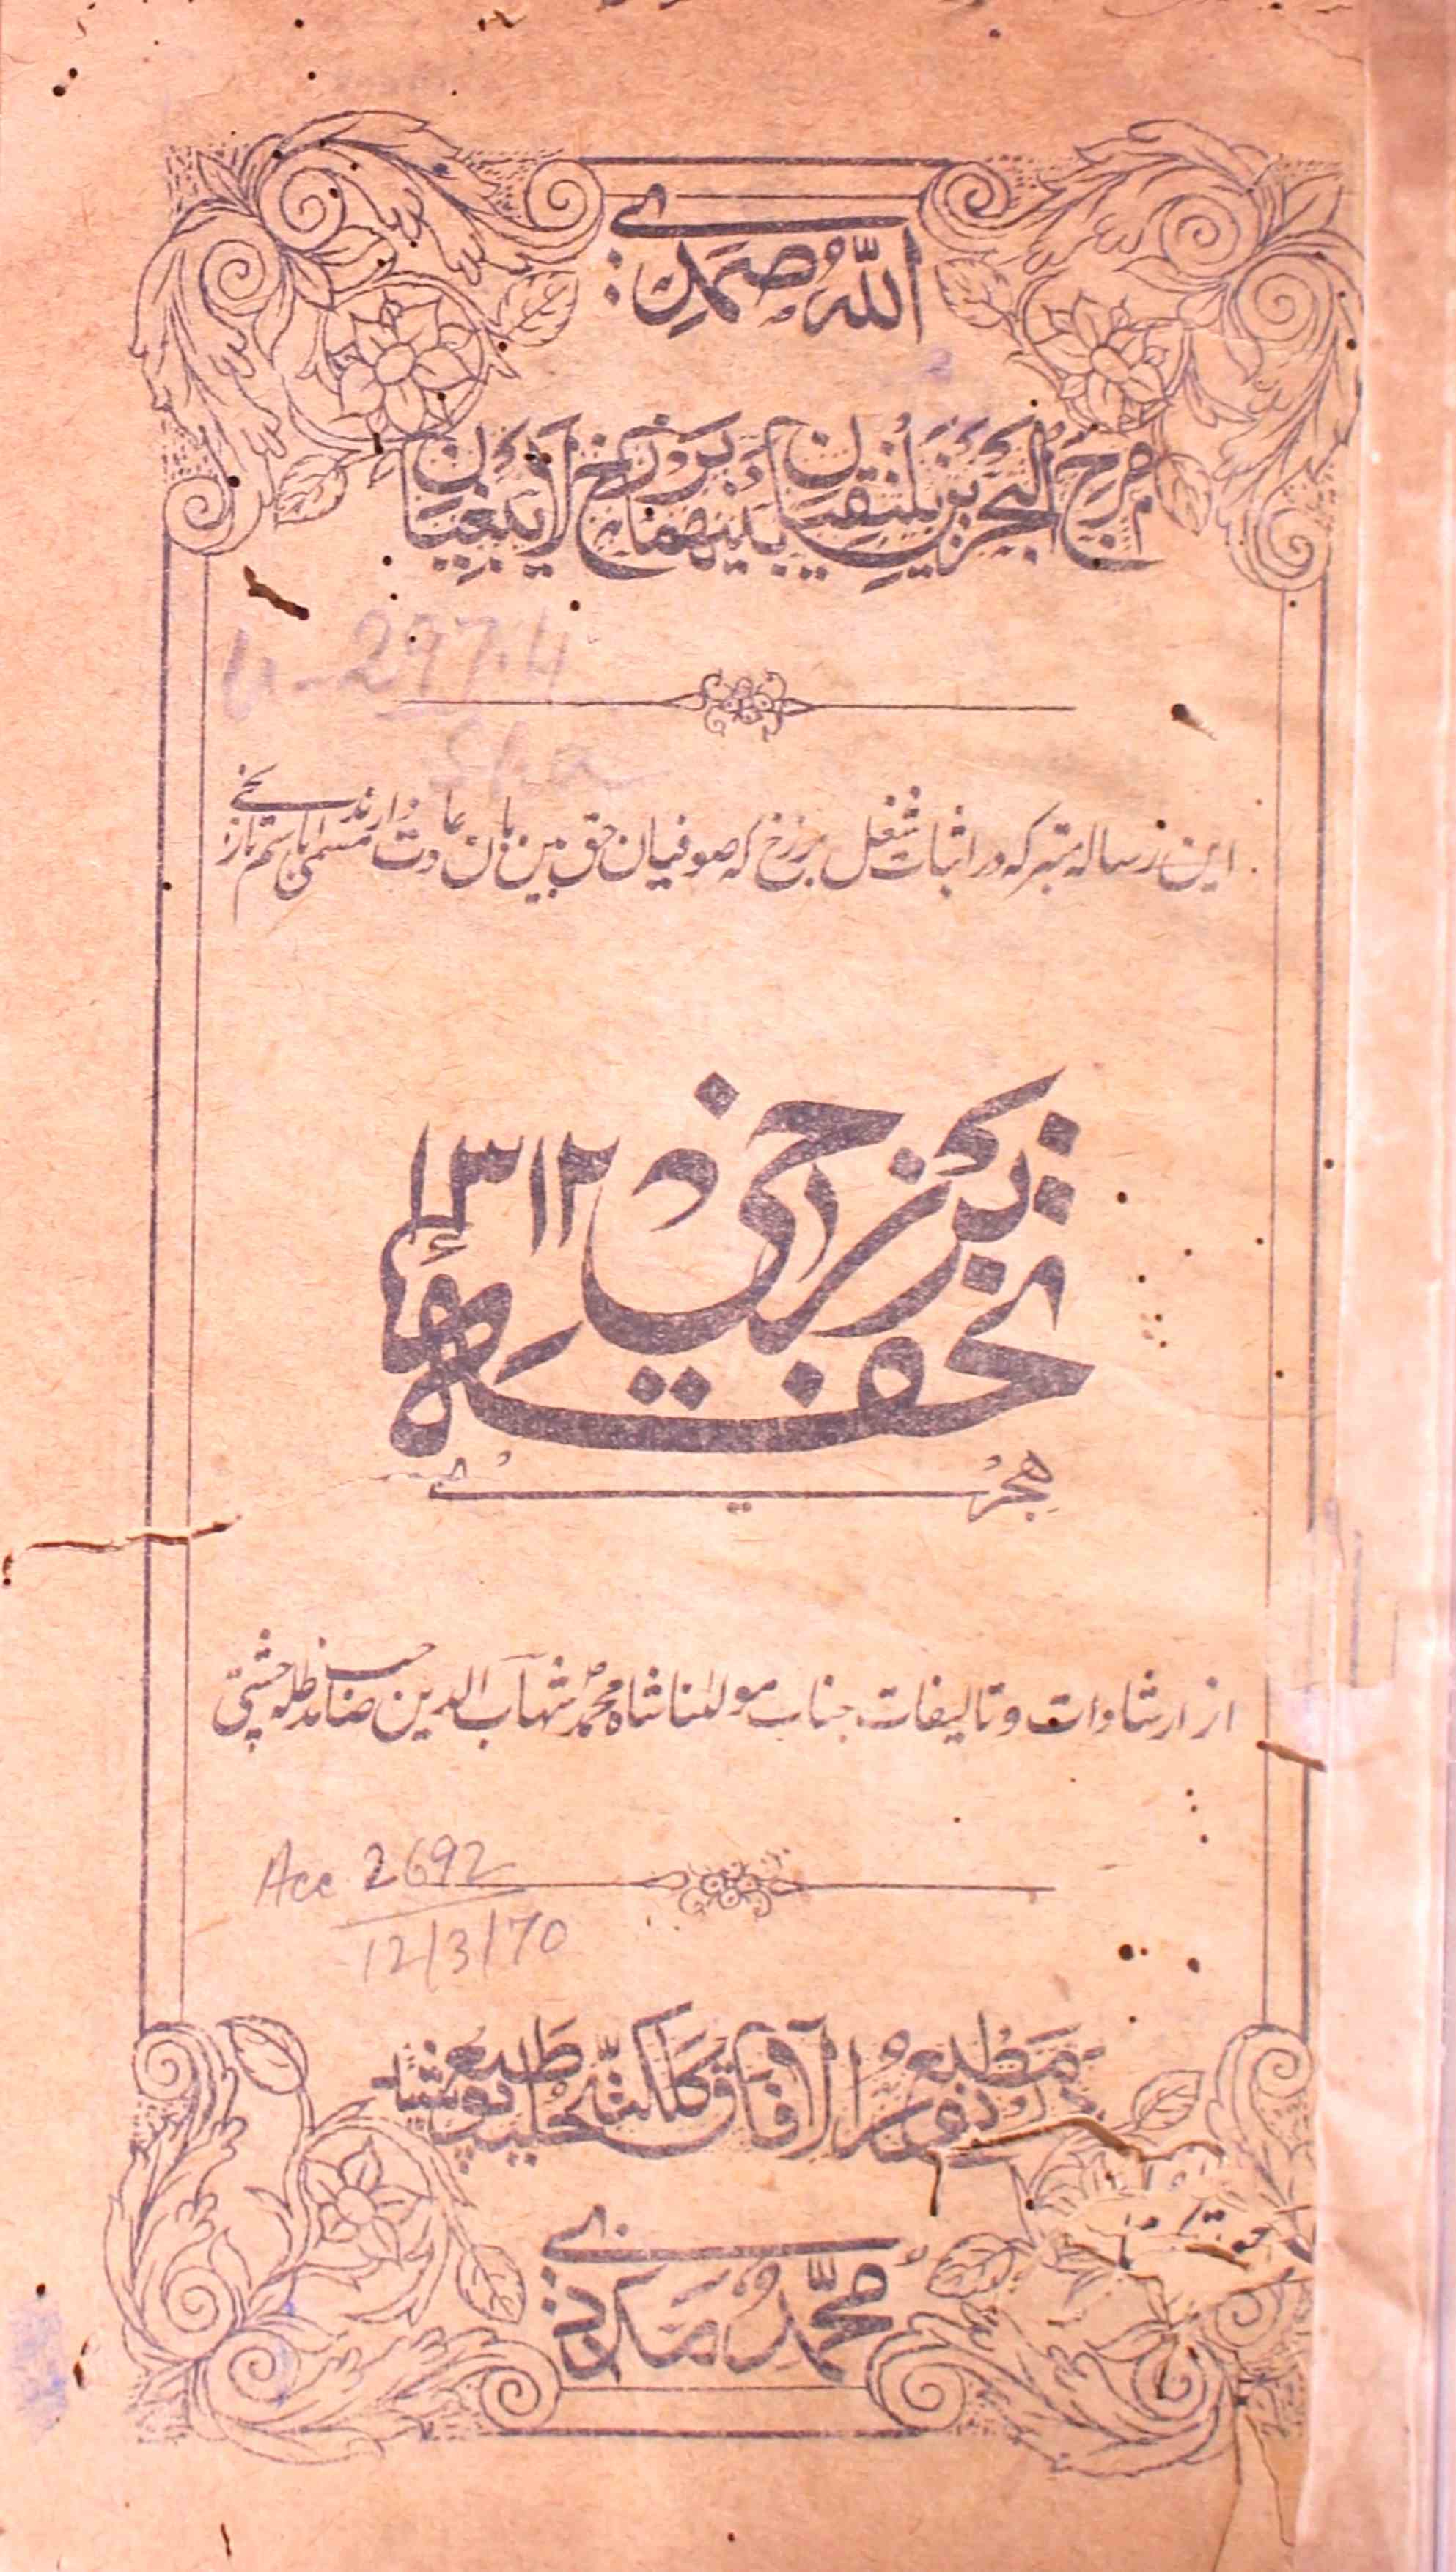 اللّٰہ صمدی
مَرَجَ الْبَحْرَيْنِ يَلْتَقِيَانِ بَيْنَهُمَا بَرْزَخٌ لَا يَبْغِيَانِ
U-297.4
Sha
این رسالہ متبرکہ در اثبات شغل برزخ کہ صوفیان حق بین بآن عادت دارند مسمی باسم تاریخی
تحفۃ برزخی
۱۳۱۲
ھجری
از ارشادات و تالیفات جناب مولٰنا شاہ محمد شہاب الدین صاحب مد ظلہ چشتی
Acc 2692
12/3/70
بمطبع نور الآفاق کلکتہ حلیہ طبع پوشید
محمّد مدنی